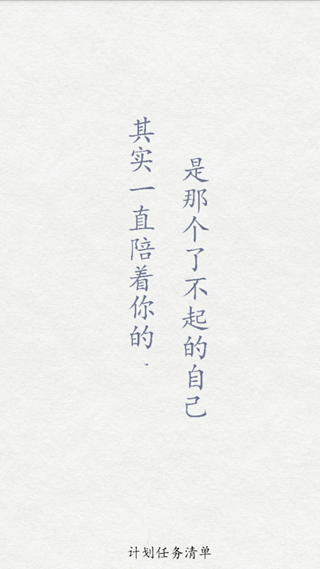 其实一直陪着你的.
是那个了不起的自己
计划任务清单